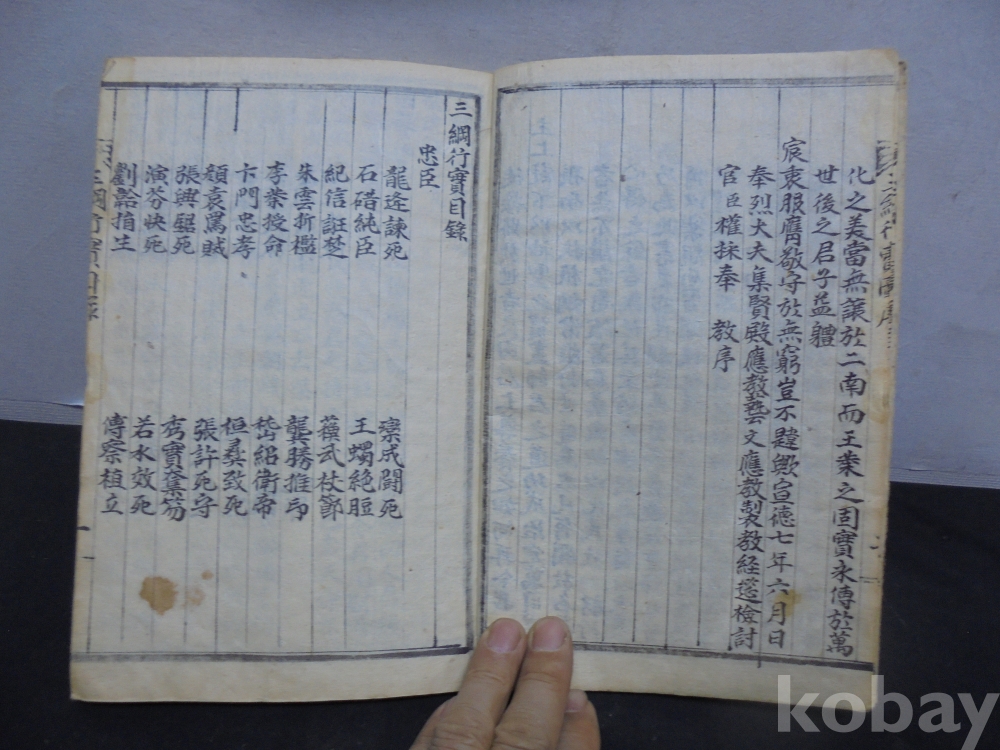 化之美當無讓於二南而王業之固實永傳於萬
世後之君子益體
宸衷服膺敬守於無窮豈不韙歟宣德七年六月日
奉烈大夫集賢殿應教藝文應教製教經筵檢討
官臣權採奉 教序
三綱行實目錄
忠臣
龍逄諫死 欒成鬪死
石碏純臣 王蠋絶脰
紀信誑楚 蘇武杖節
朱雲折檻 龔勝推印
李業授命 嵇紹衛帝
卞門忠孝 桓彝致死
顔袁罵賊 張許死守
張興鋸死 秀實奪笏
演芬快死 若水效死
劉韐捐生 傅察植立
三綱行實目錄
kobay